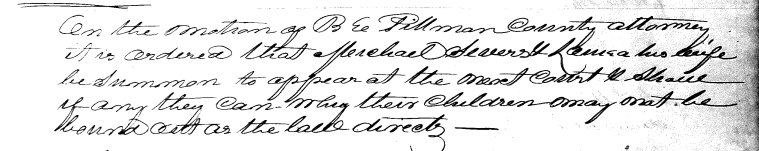 On the motion of B E Tillman County attorney
it is ordered that Michael Severs & his wife
be Summon to appear at the next Court & Shew
if any they can why their Children may not be
bound out as the law directs —